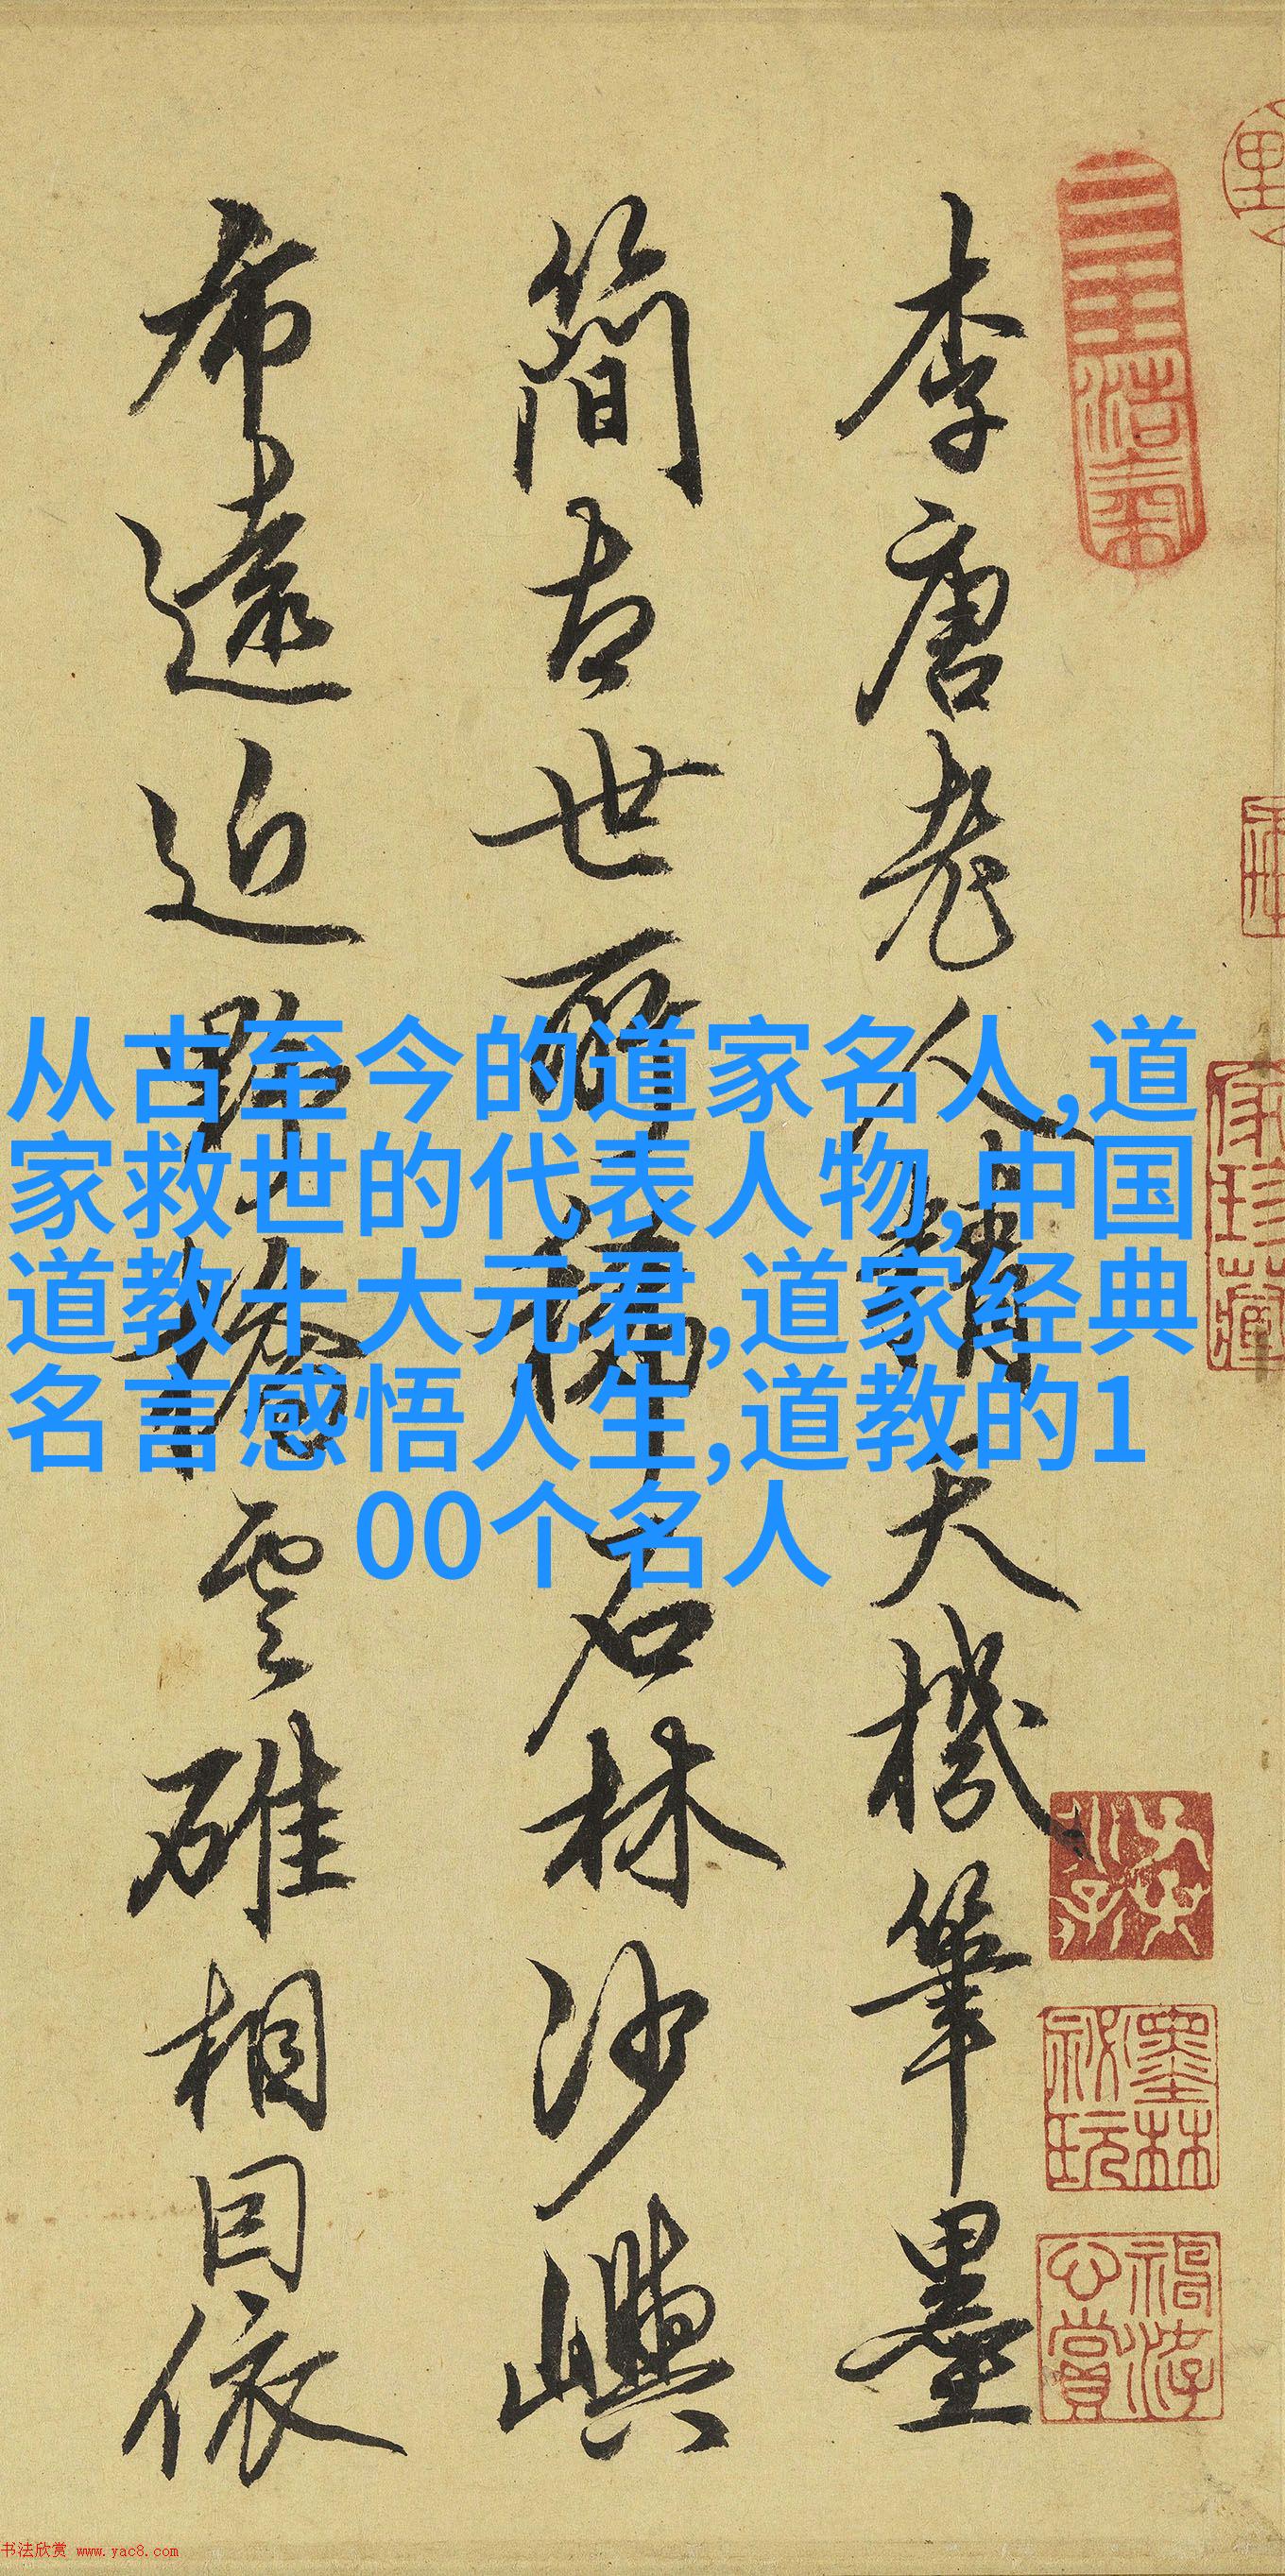 李唐老人精天機筆墨
簡古世所稱石林沙嶼
布遠近野燒雲碓相因依
从古至今的道家名人,道
家救世的代表人物,中国
道教十大元君,道家经典
名言感悟人生,道教的1
00个名人
书法欣赏 www.yac8.com